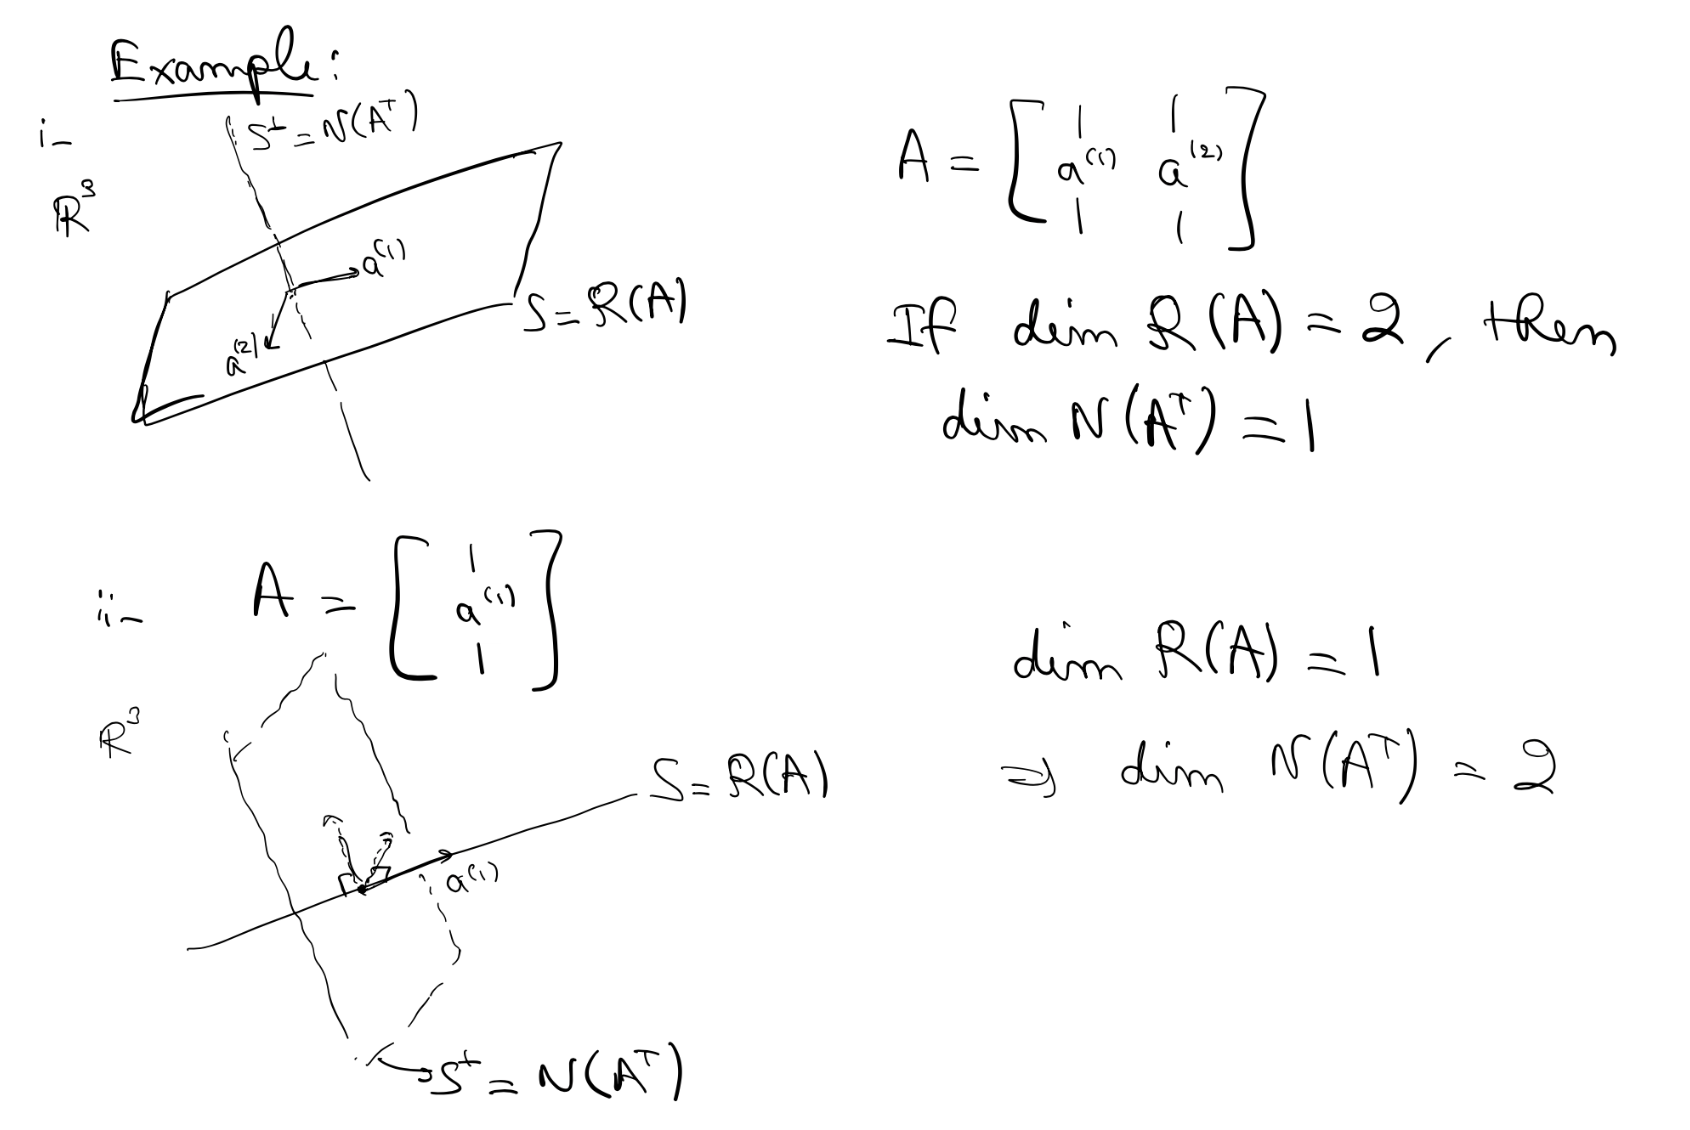 Example:
i-
S⊥ = N(Aᵀ)
ℝ³
a⁽¹⁾
a⁽²⁾
S = R(A)
A = [ | |
a⁽¹⁾ a⁽²⁾
| | ]
If dim R(A) = 2, then
dim N(Aᵀ) = 1
ii-
A = [ |
a⁽¹⁾
| ]
ℝ³
S = R(A)
a⁽¹⁾
S⊥ = N(Aᵀ)
dim R(A) = 1
⇒ dim N(Aᵀ) = 2